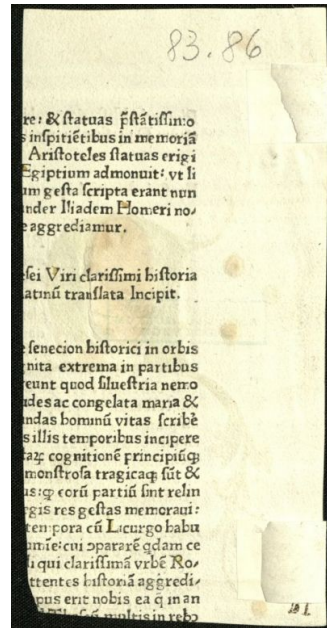 83.86
re: & statuas p̄stātissimo
s inspitiētibus in memoriā
Aristoteles statuas erigi
Egiptium admonuit: vt li
um gesta scripta erant nun
nder Iliadem Homeri no-
e aggrediamur.
sei Viri clarissimi historia
atinū translata Incipit.
e senecion historici in orbis
gnita extrema in partibus
eunt quod siluestria nemo
udes ac congelata maria &
ndas hominū vitas scribē
s illis temporibus incipere
cognitionē principiūq;
monstrosa tragicaq; sūt &
eorū partiū sint relin
rgis res gestas memoraui:
tempora cū Licurgo habu
cui ↄparare qdam ce
li qui clarissimā vrbē Ro-
ttentes historiā aggredi-
pus erit nobis ea q in an
multis in reb